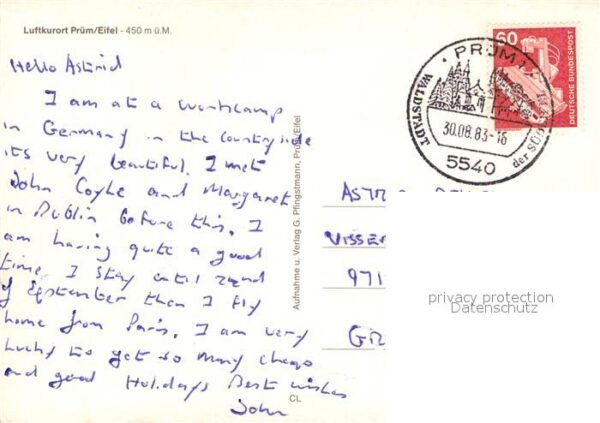 Luftkurort Prüm/Eifel - 450 m ü.M.
Hello Astrid
I am at a workcamp
in Germany in the countryside
its very beautiful. I met
John Coyle and Margaret
in Dublin before this. I
am having quite a good
time. I stay until 22nd
of September then I fly
home from Paris. I am very
lucky to get so many cheap
and good Holidays Best wishes
John
Aufnahme u. Verlag G. Pfingstmann, Prüm/Eifel
CL
60
DEUTSCHE BUNDESPOST
PRÜM
WALDSTADT
30.08.83-16
der
5540
VISSER
971
privacy protection
Datenschutz